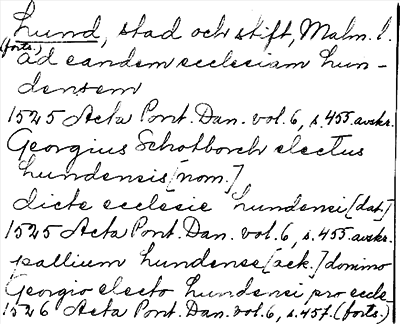 Lund, stad och stift, Malm. l.
(forts.)
ad eandem ecclesiam Lun-
densem
1525 Acta Pont. Dan. vol. 6, s. 455 avskr.
Georgius Schotborch electus
Lundensis [nom.]
dicte ecclesie Lundensi [dat.]
1525 Acta Pont. Dan. vol. 6, s. 455 avskr.
pallium Lundense [ack.] domino
Georgio electo Lundensi pro eccle
1526 Acta Pont. Dan. vol. 6, s. 457. (forts.)